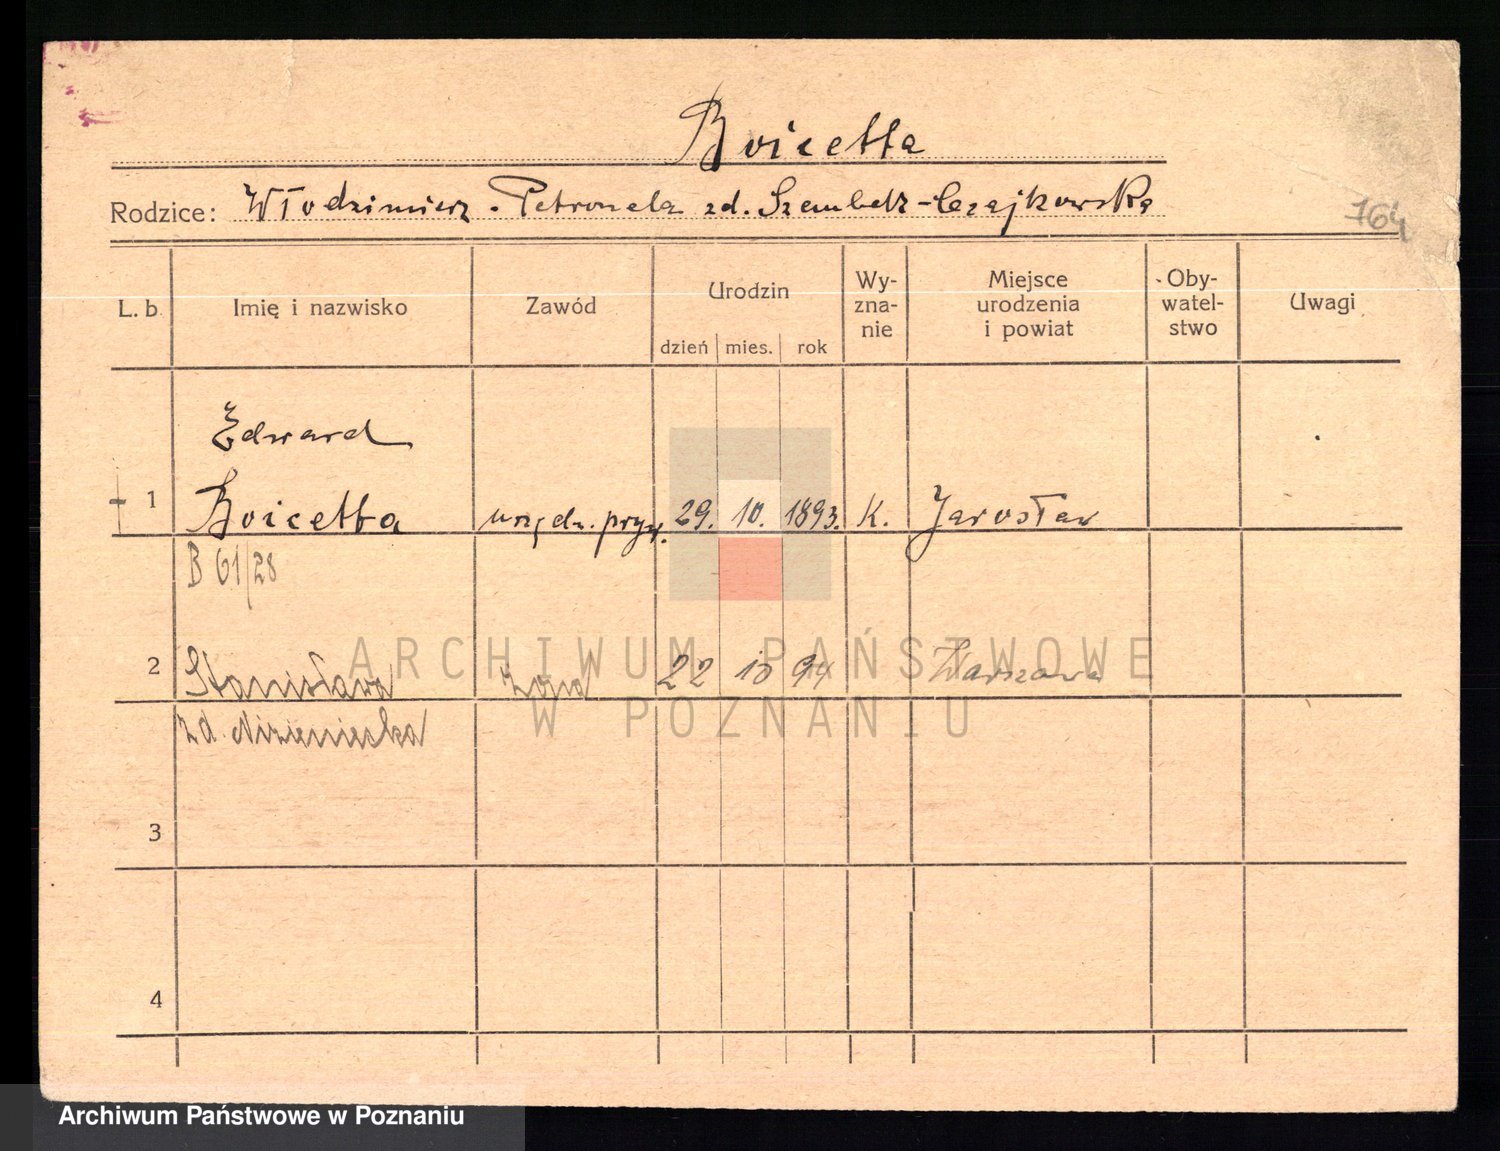 Boicetta
Rodzice: Włodzimierz - Petronela zd. Szembek-Czajkowska
164
L. b. Imię i nazwisko Zawód Urodzin dzień mies. rok Wy-zna-nie Miejsce urodzenia i powiat Oby-watel-stwo Uwagi
Edward
1 Boicetta urzędn. pryw. 29. 10. 1893. K. Jarosław
B 61/28
2 Stanisława żona 22 10 94 Warszawa
zd. Niznieniecka
3
4
ARCHIWUM PAŃSTWOWE
W POZNANIU
Archiwum Państwowe w Poznaniu